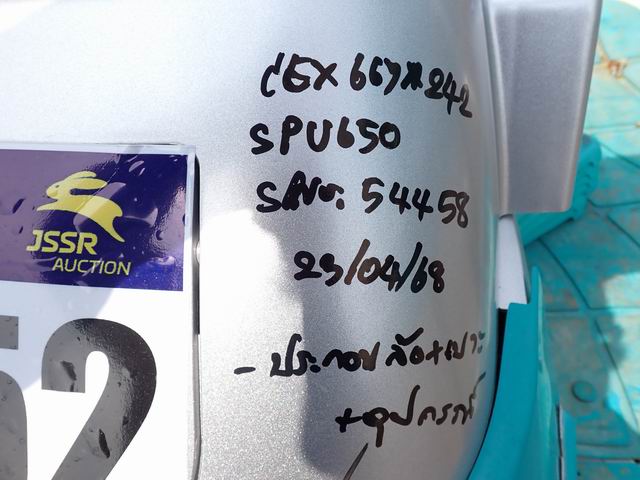 SPU650
S/No. 54458
25/04/68
- ประกอบล้อ+เบาะ
+อุปกรณ์
JSSR
AUCTION
52